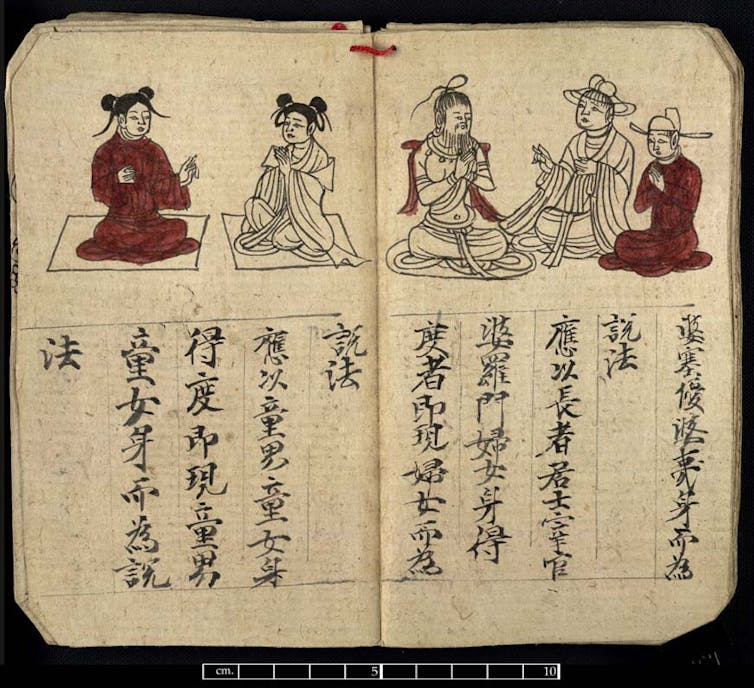 婆塞優婆夷身而為
說法
應以長者居士宰官
婆羅門婦女身得
度者即現婦女而為
說法
應以童男童女身
得度即現童男
童女身而為說
法
cm. 5 10